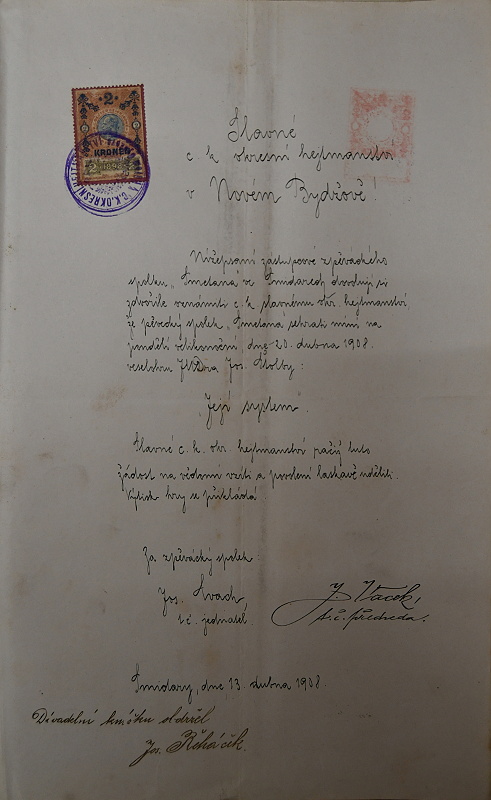 2
KRONEN
1898
C.K. OKRESNÍ
Slavné
c. k. okresní hejtmanství
v Novém Bydžově!
Nížepsaní zástupcové zpěváckého
spolku „Smetana" ve Smidarech dovolují si
zdvořile oznámiti c. k. slavnému okr. hejtmanství,
že pěvecký spolek „Smetana" sehrati míní na
pondělí velikonoční, dne 20. dubna 1908.
veselohru Jos. Štolby:
„Její system".
Slavné c. k. okr. hejtmanství račiž tuto
žádost na vědomí vzíti a povolení laskavě uděliti.
Výtisk hry se přikládá.
Za zpěvácký spolek:
Jos. Svach
t. č. jednatel.
J. Vacek,
t. č. předseda.
Smidary, dne 13. dubna 1908.
Divadelní knížku obdržel
Jos. Řeháček.